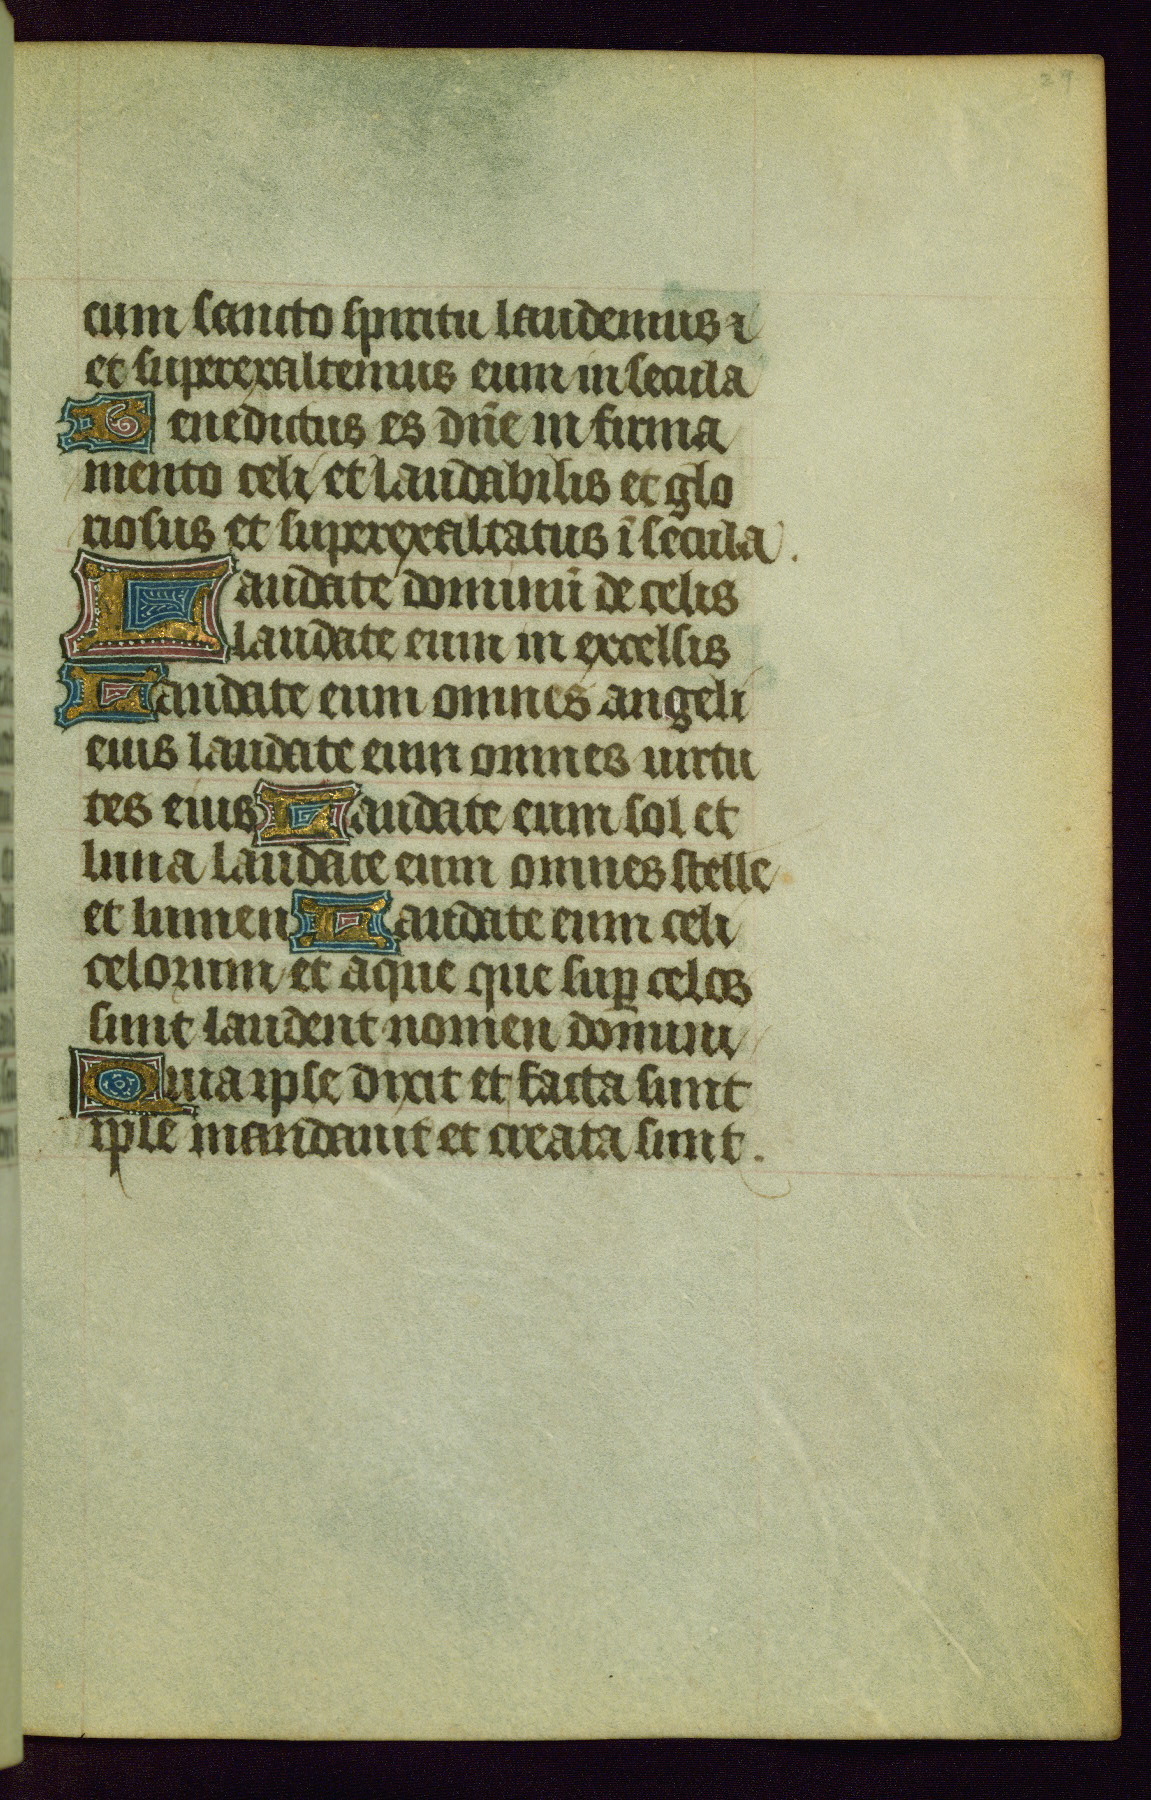 29
cum sancto spiritu laudemus ⁊
et superexaltemus eum in secula
Benedictus es dñe in firma
mento celi et laudabilis et glo
riosus et superexaltatus ī secula.
Laudate dominū de celis
laudate eum in excelsis
Laudate eum omnes angeli
eius laudate eum omnes uirtu
tes eius Laudate eum sol et
luna laudate eum omnes stelle
et lumen Laudate eum celi
celorum et aque que suꝑ celos
sunt laudent nomen domini
Quia ipse dixit et facta sunt
ipse mandauit et creata sunt.